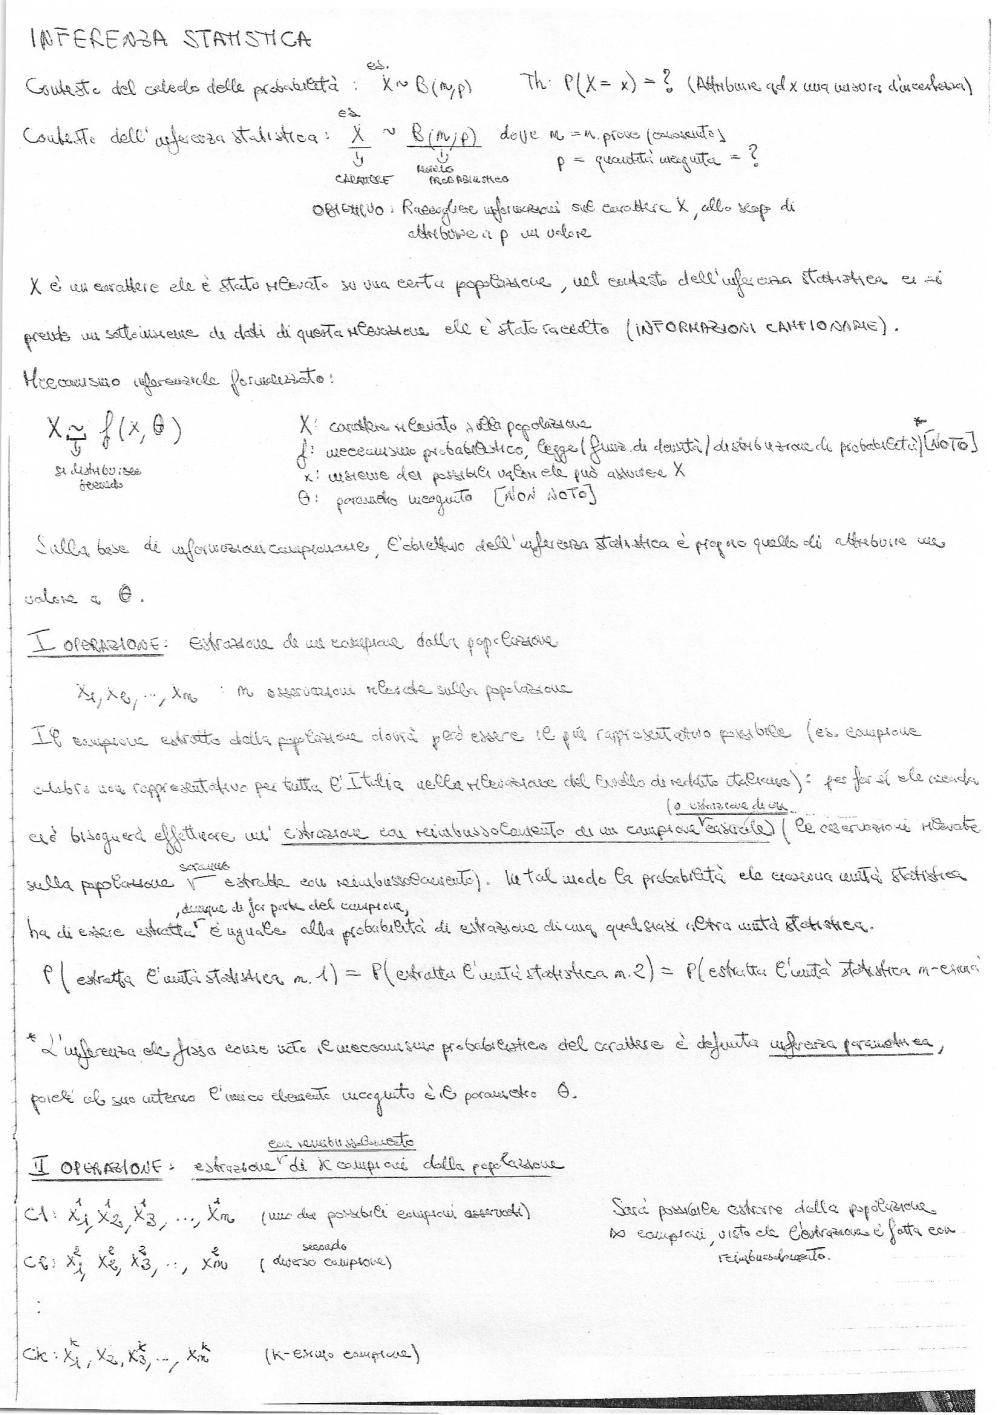 INFERENZA STATISTICA
Contesto del calcolo delle probabilità : es. X ~ B(n,p) Th: P(X = x) = ? (Attribuire ad x una misura d'incertezza)
Contesto dell'inferenza statistica : es X ~ B(n;p) dove n = n. prove (conosciuto)
p = quantità incognita = ?
CARATTERE MODELLO PROBABILISTICO
OBIETTIVO : Raccogliere informazioni sul carattere X, allo scopo di
attribuire a p un valore
X è un carattere che è stato rilevato su una certa popolazione, nel contesto dell'inferenza statistica ci si
prende un sottoinsieme di dati di questa rilevazione che è stato raccolto (INFORMAZIONI CAMPIONARIE).
Meccanismo inferenziale formalizzato:
X ~ f(x, θ)
si distribuisce secondo
X: carattere rilevato sulla popolazione
f: meccanismo probabilistico, legge (funz. di densità / distribuzione di probabilità)* [NOTO]
x: insieme dei possibili valori che può assumere X
θ: parametro incognito [NON NOTO]
Sulla base di informazioni campionarie, l'obiettivo dell'inferenza statistica è proprio quello di attribuire un
valore a θ.
I OPERAZIONE: Estrazione di un campione dalla popolazione
x1, x2, ..., xn : n osservazioni rilevate sulla popolazione
Il campione estratto dalla popolazione dovrà però essere il più rappresentativo possibile (es. campione
calabro non rappresentativo per tutta l'Italia nella rilevazione del livello di reddito italiano): per far sì che accada
ciò bisognerà effettuare un' estrazione con reimbussolamento di un campione (o estrazione di un casuale) (le osservazioni rilevate
sulla popolazione saranno estratte con reimbussolamento). In tal modo la probabilità che ciascuna unità statistica
ha di essere estratta, dunque di far parte del campione, è uguale alla probabilità di estrazione di una qualsiasi altra unità statistica.
P( estratta l'unità statistica n. 1) = P(estratta l'unità statistica n. 2) = P(estratta l'unità statistica n-esima
* L'inferenza che fissa come noto il meccanismo probabilistico del carattere è definita inferenza parametrica,
poiché al suo interno l'unico elemento incognito è il parametro θ.
II OPERAZIONE: estrazione con reimbussolamento di k campioni dalla popolazione
C1: x¹1, x¹2, x¹3, ..., x¹n (uno dei possibili campioni osservati)
C2: x²1, x²2, x²3, ..., x²n (secondo diverso campione)
:
Ck: x^k1, x2, x^k3, ..., x^kn (k-esimo campione)
Sarà possibile estrarre dalla popolazione
∞ campioni, visto che l'estrazione è fatta con
reimbussolamento.